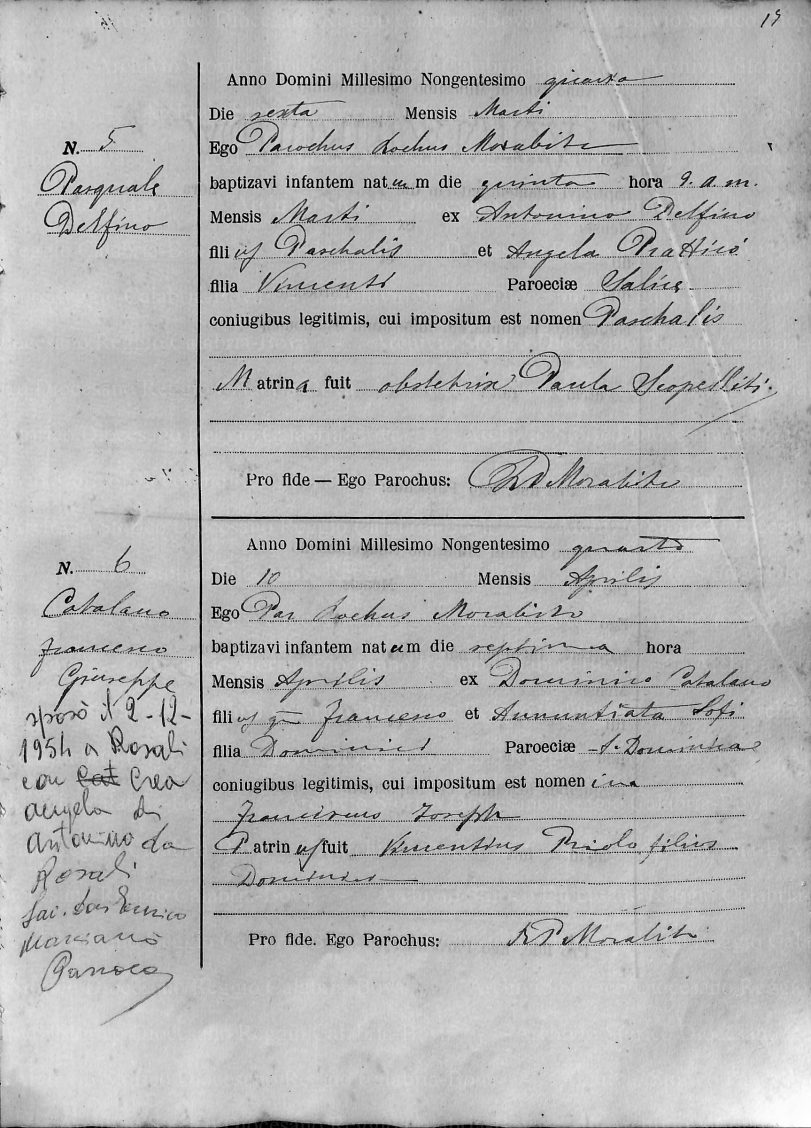 19
Anno Domini Millesimo Nongentesimo quarto
Die sexta Mensis Marti
N. 5
Ego Parochus Rochus Morabito
Pasquale
baptizavi infantem natum die quinta hora 9. a. m.
Delfino
Mensis Marti ex Antonino Delfino
filius Paschalis et Angela Pratticò
filia Vincenti Paroeciæ Salice
coniugibus legitimis, cui impositum est nomen Paschalis
Matrina fuit obstetrix Paula Scopelliti
Pro fide — Ego Parochus: Morabito
Anno Domini Millesimo Nongentesimo quarto
N. 6
Die 10 Mensis Aprilis
Catalano
Ego Par Rochus Morabito
Francesco
baptizavi infantem natum die septima hora
Giuseppe
Mensis Aprilis ex Dominico Catalano
sposò il 2-12-
filius qm Francesco et Annuntiata Sofi
1954 a Rosalì
filia Dominici Paroeciæ S. Dominicae
con Cat Crea
coniugibus legitimis, cui impositum est nomen
Angela di
Franciscus Joseph
Antonino da
Patrinus fuit Vincentius Priolo filius
Rosalì
Dominici
Sac. Don Enrico
Pro fide. Ego Parochus: Morabito
Marcianò
Parroco